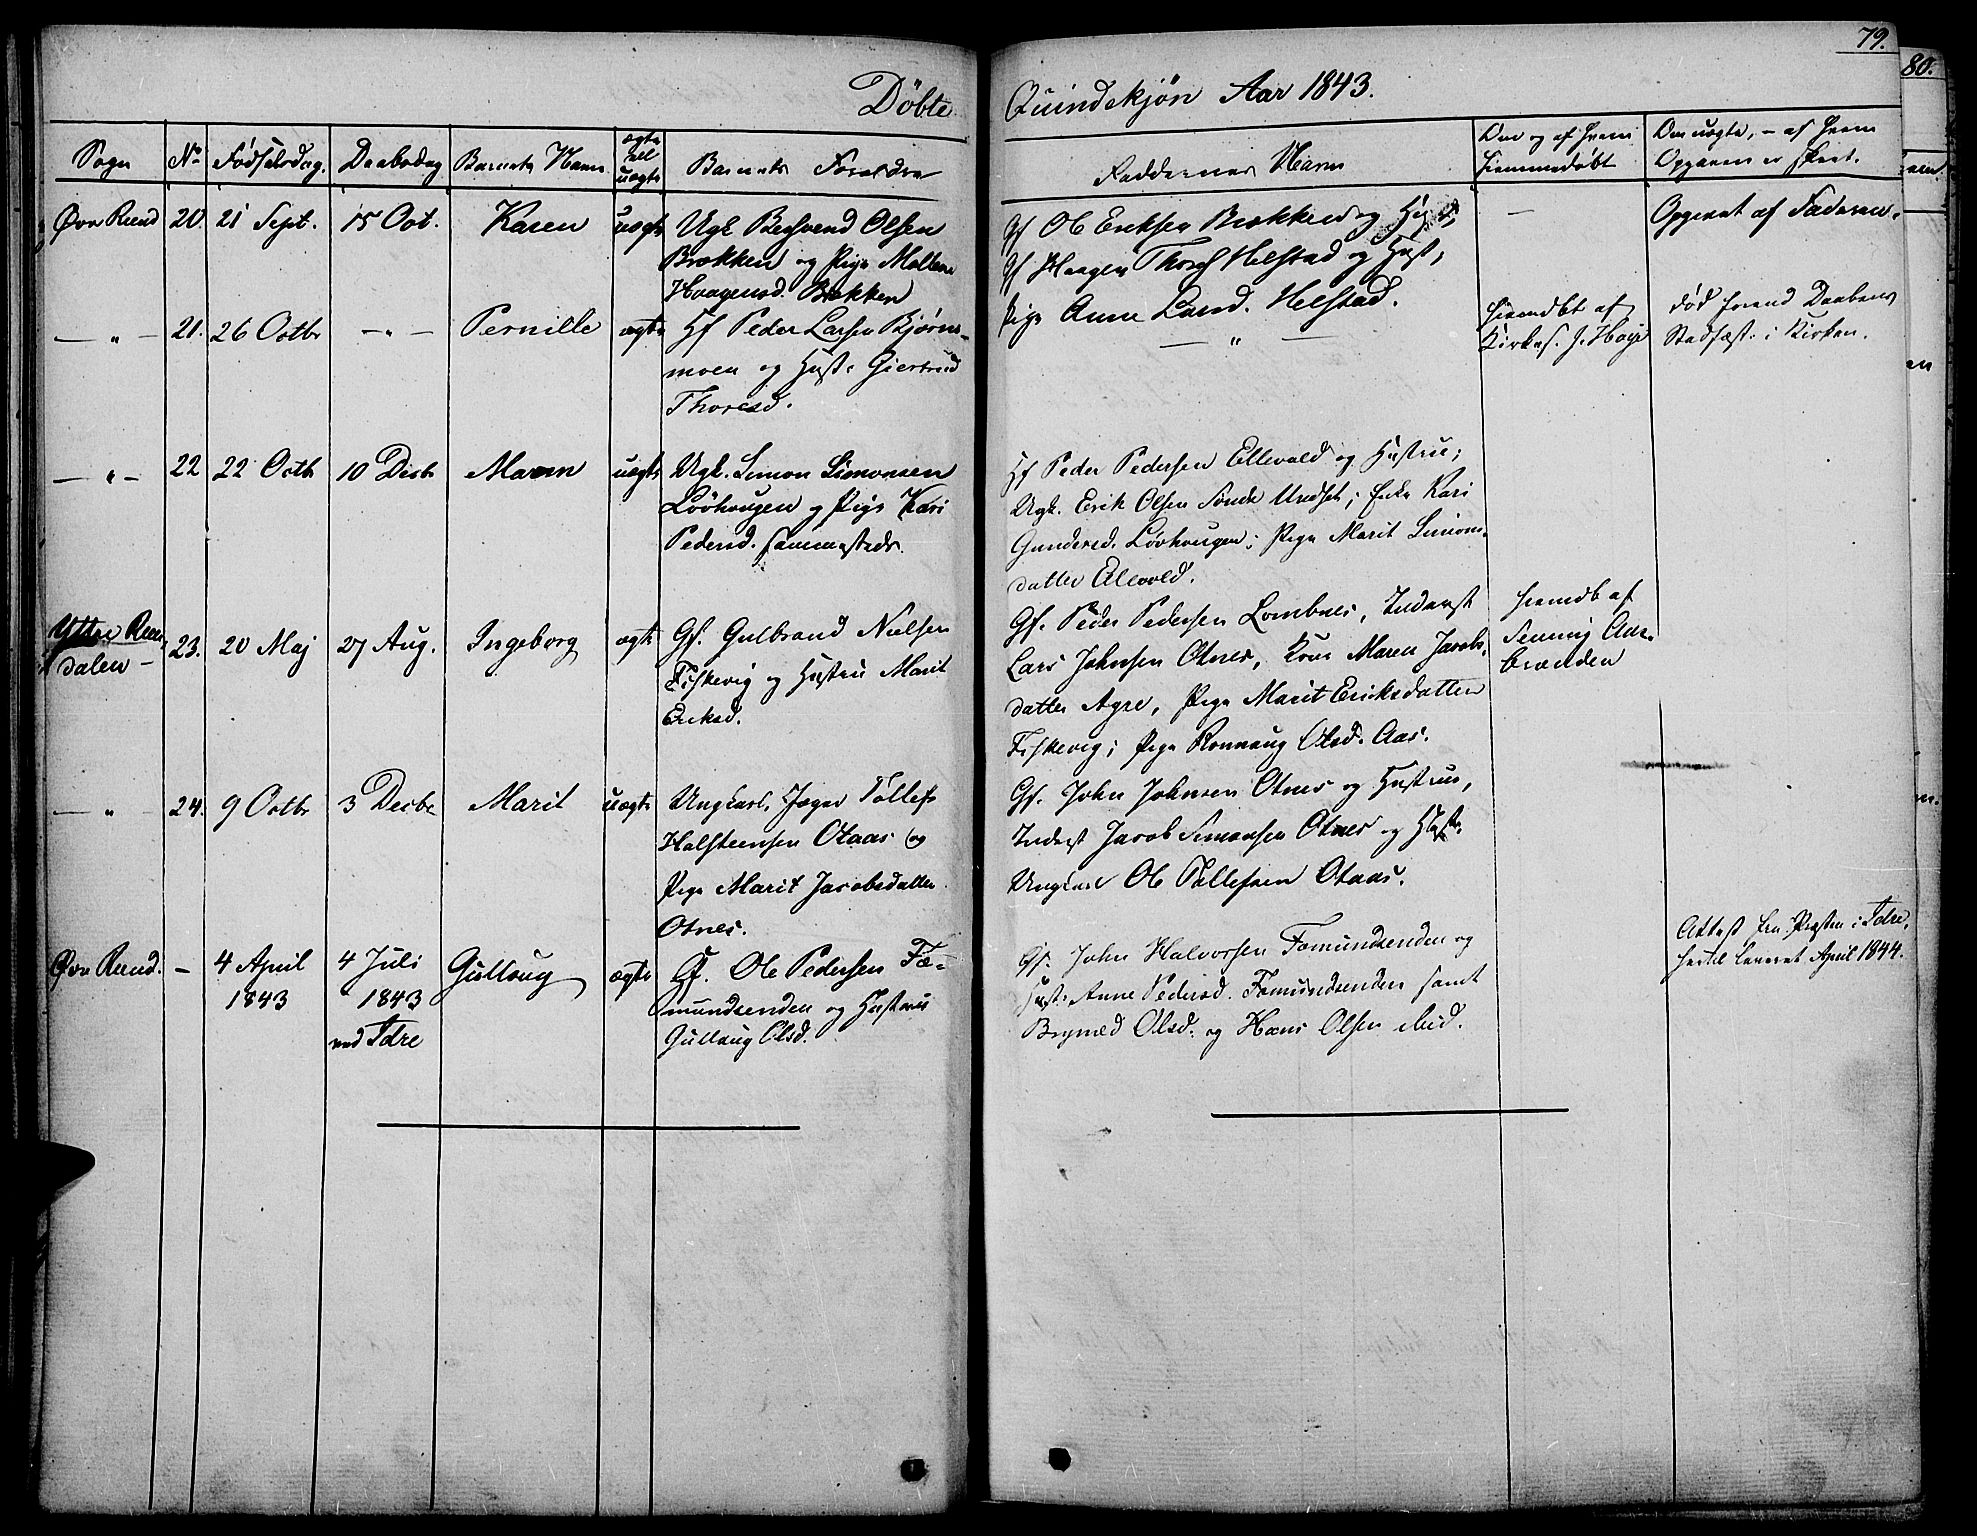 79.
80.
Döbte Quindekjön Aar 1843.
Sogn
No
Födselsdag.
Daabsdag
Barnets Navn
ægte
hel
uægte
Barnets Foreldre
Faddernes Navn
Om og af hvem
hiemmedöbt
Om uægte, – af hvem
Opgaven er skeet.
Övr Rend 20. 21 Sept. 15 Oct. Karen uægte
Ugk Bersvend Olsen
Brækken og Pige
Haagensd. Bækken
Gf Ole Eriksen Brækken og
Gf Haagen Thors Helstad og Hust,
Pige Anne Helstad.
—
Opgivet af Faderen.
— " — 21. 26 Octbr — " — Pernille ægte
Gf Peder Larsen Björn-
moen og Hust. Giertrud
Thoresd.
— " —
hiemdbt af
Kirkes. J. Höye
död forend Daabens
Stadfæst. i Kirken.
— " — 22 22 Octb 10 Decb Maren uægte
Ugk. Simon Simonsen
Lövhougen og Pige Kari
Pedersd. sammesteds.
Gf Peder Pedersen Ellevold og Hustru;
Ugk. Erik Olsen Söndr Undset; Enke Kari
Gundersd. Lövhougen; Pige Marit Simons-
datter Ellevold.
Yttre Ren-
dalen — 23. 20 Maj 27 Aug. Ingeborg ægte
Gf. Gulbrand Nielsen
Fiskevig og Hustru Marit
Eriksd.
Gf. Peder Pedersen Lombnes, Inderst
Lars Johnsen Otnes, Kone Maren Jacobs-
datter Agre, Pige Marit Eriksdatter
Fiskevig; Pige Ronnaug Olsd. Aas.
hiemdb af
Henning Aar-
brænden
— " — 24. 9 Octbr 3 Decbr Marit uægte
Ungkarl, Jæger Tollef
Halsteensen Otaas og
Pige Marit Jacobsdatter
Otnes.
Gf. John Johnsen Otnes og Hustru,
Inderst Jacob Simonsen Otnes og Hust.
Ungkarl Ole Tollefsen Otaas.
Övr Rend. — 4 April
1843
4 Juli
1843
ved Idre
Gullaug ægte
Gf. Ole Pedersen Fæ-
mundsenden og Hustru
Gullaug Olsd.
Gf. John Halvorsen Fæmundsenden og
Hust. Anne Pedersd. Fæmundsenden samt
Olsd. og Hans Olsen ibid.
Attest fra Præsten i Idre,
hertil leveret April 1844.